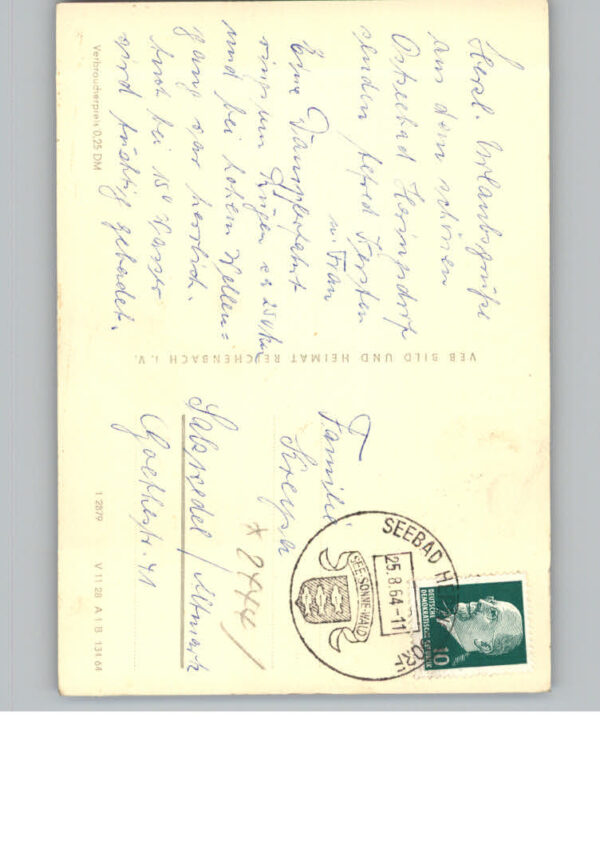 Herzl. Urlaubsgrüße
aus dem schönen
Ostseebad Heringsdorf
senden Alfred Kersten
u. Frau
Eine Dampferfahrt
rings um Rügen ca 250 km
und bei hohem Wellen=
gang war herrlich.
Auch bei 15° Wasser
wird tüchtig gebadet.
Verbraucherpreis 0,25 DM
VEB BILD UND HEIMAT REICHENBACH i. V.
Familie
Salzwedel / Altmark
Goethestr. 41
* 2444 /
1 2879 V 11 28 A 1 B 131 64
SEEBAD
25.8.64-11
SEE-SONNE-WALD
DEUTSCHE
DEMOKRATISCHE REPUBLIK
10